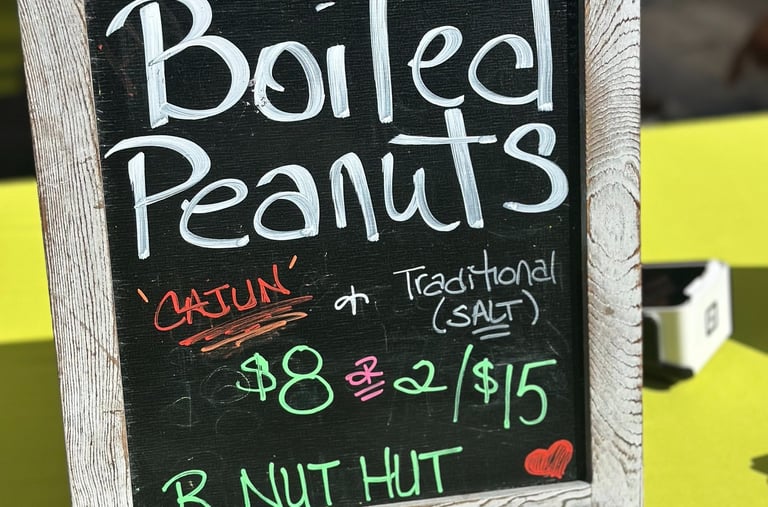 Boiled
Peanuts
'CAJUN' + Traditional
(SALT)
$8 OR 2/$15
R NUT HUT